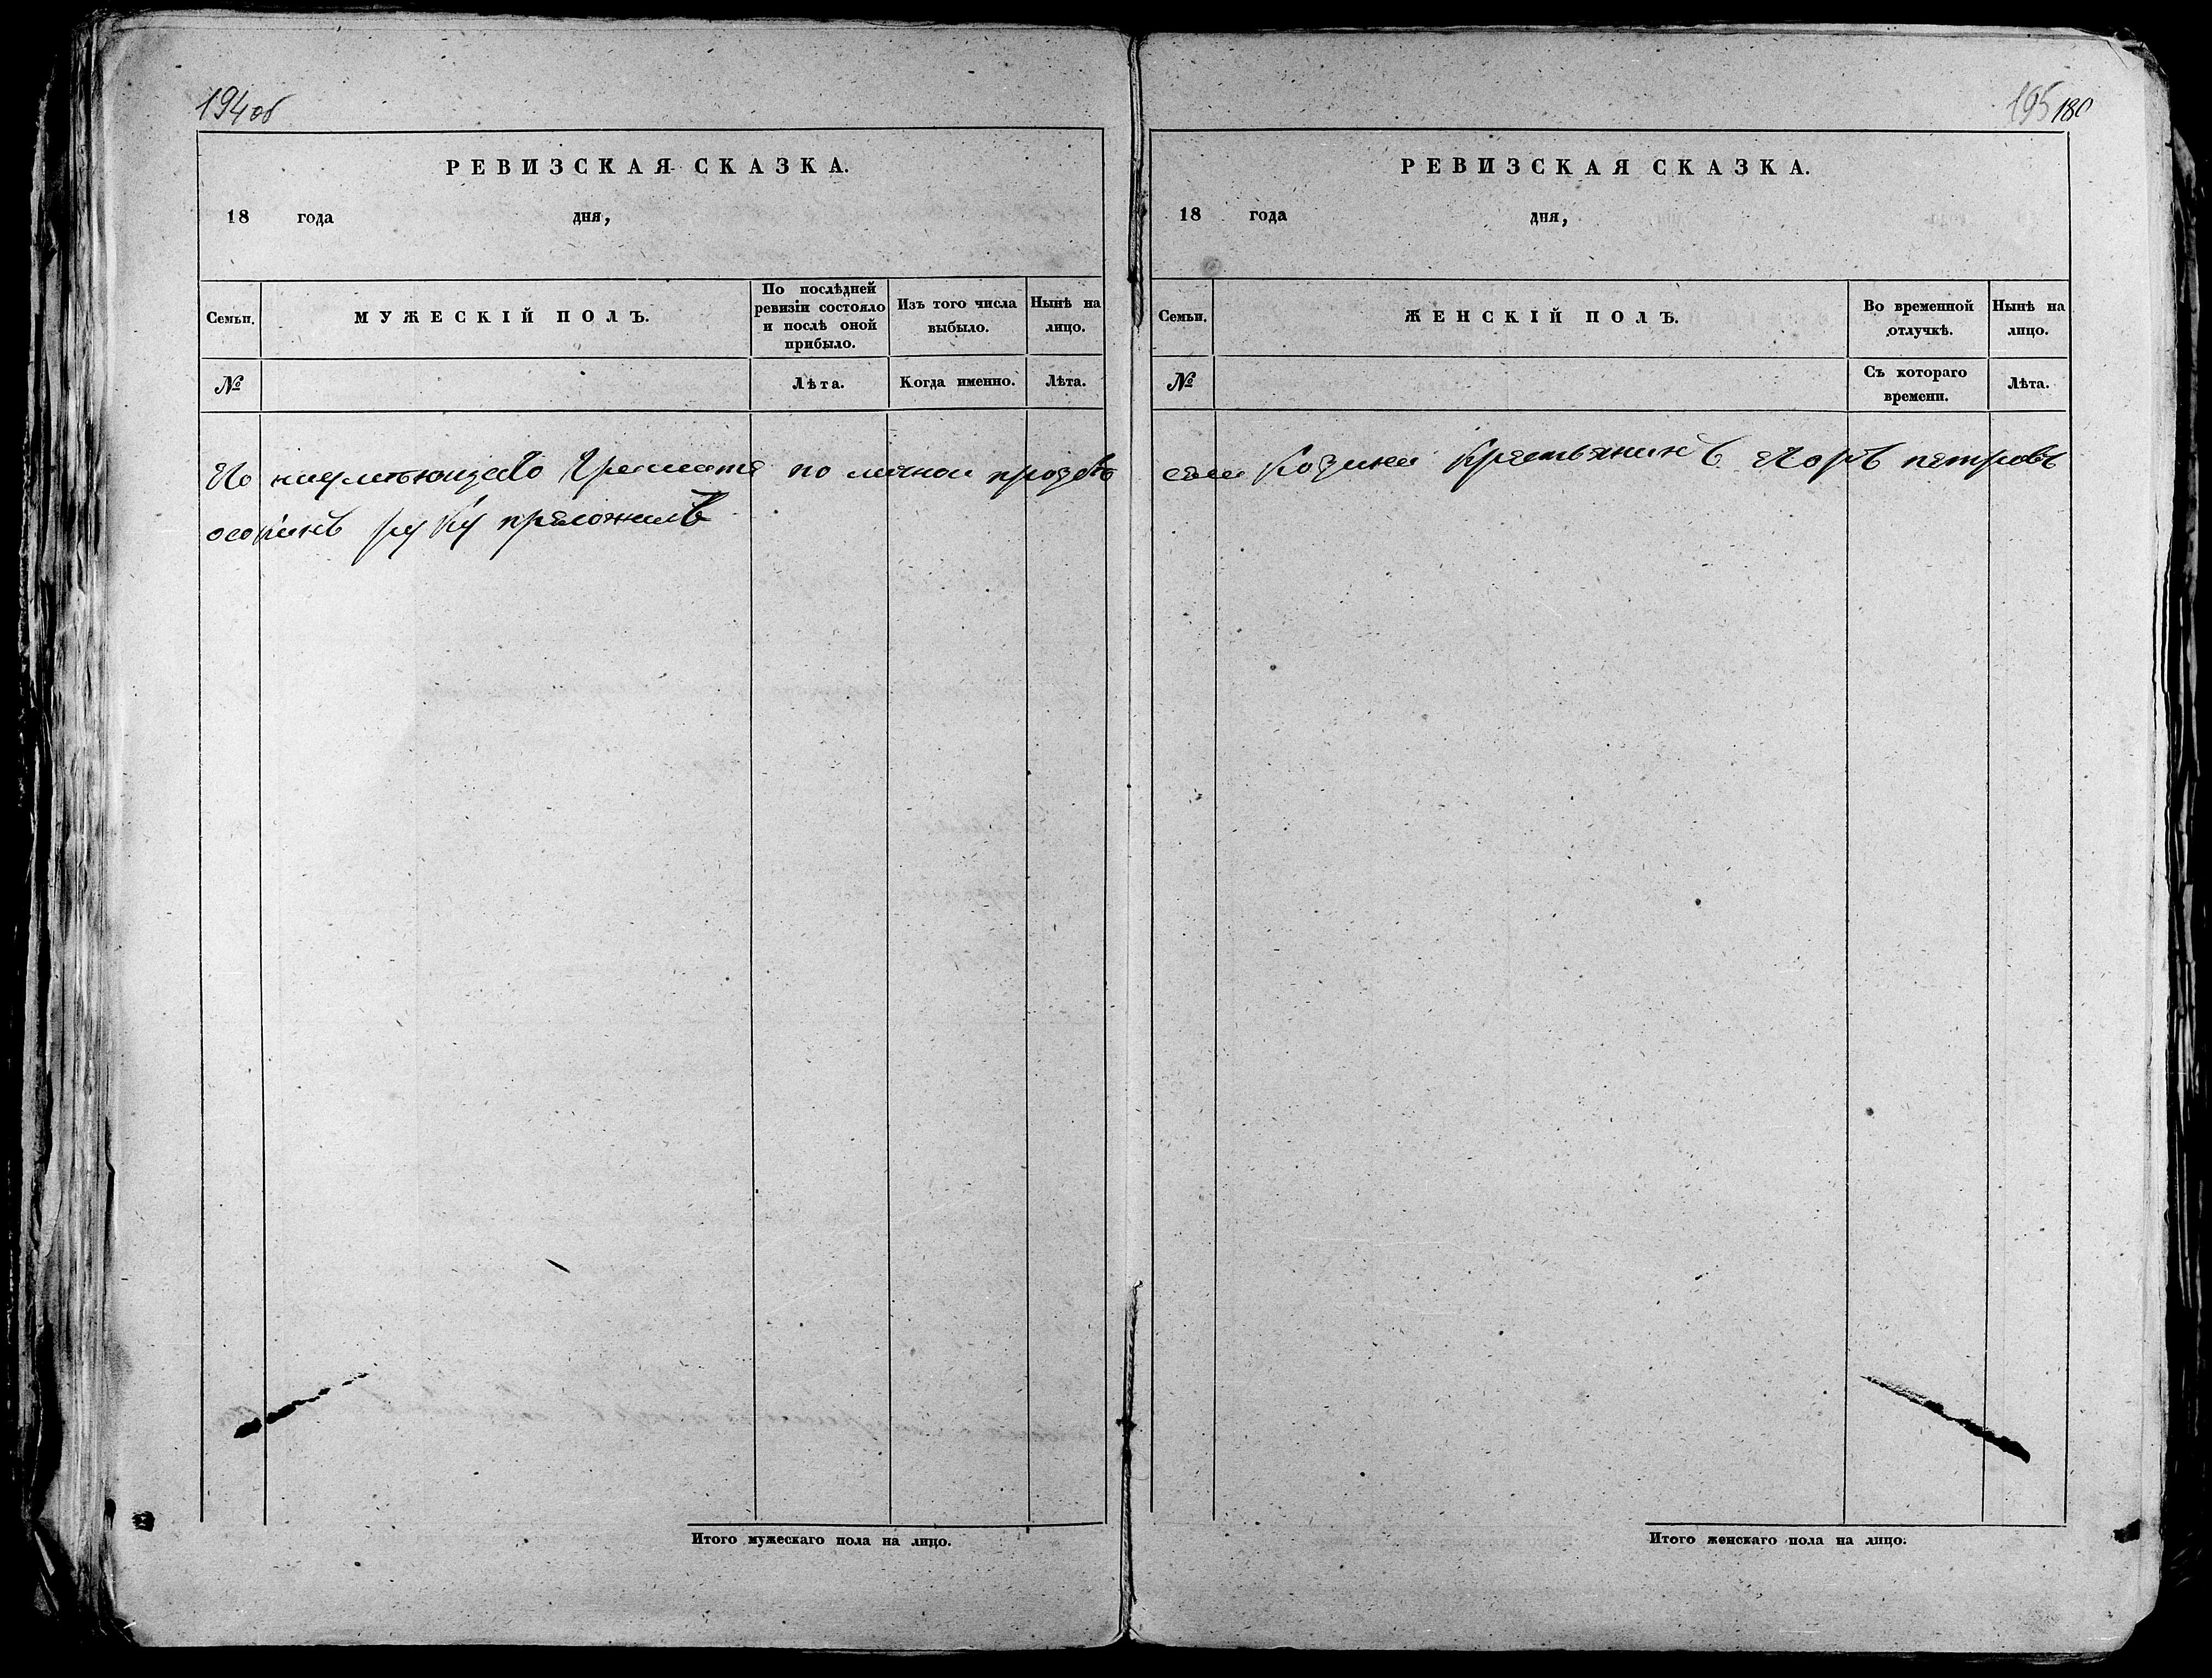 194 об
РЕВИЗСКАЯ СКАЗКА.
18 года дня,
Семьи.
МУЖЕСКІЙ ПОЛЪ.
По послѣдней ревизіи состояло и послѣ оной прибыло.
Изъ того числа выбыло.
Нынѣ на лицо.
№
Лѣта.
Когда именно.
Лѣта.
неумеющаго грамоте по личной прозбе
руку преложилъ
Итого мужескаго пола на лицо.
195 180
РЕВИЗСКАЯ СКАЗКА.
18 года дня,
Семьи.
ЖЕНСКІЙ ПОЛЪ.
Во временной отлучкѣ.
Нынѣ на лицо.
№
Съ котораго времени.
Лѣта.
крестьянинъ егоръ петровъ
Итого женскаго пола на лицо.